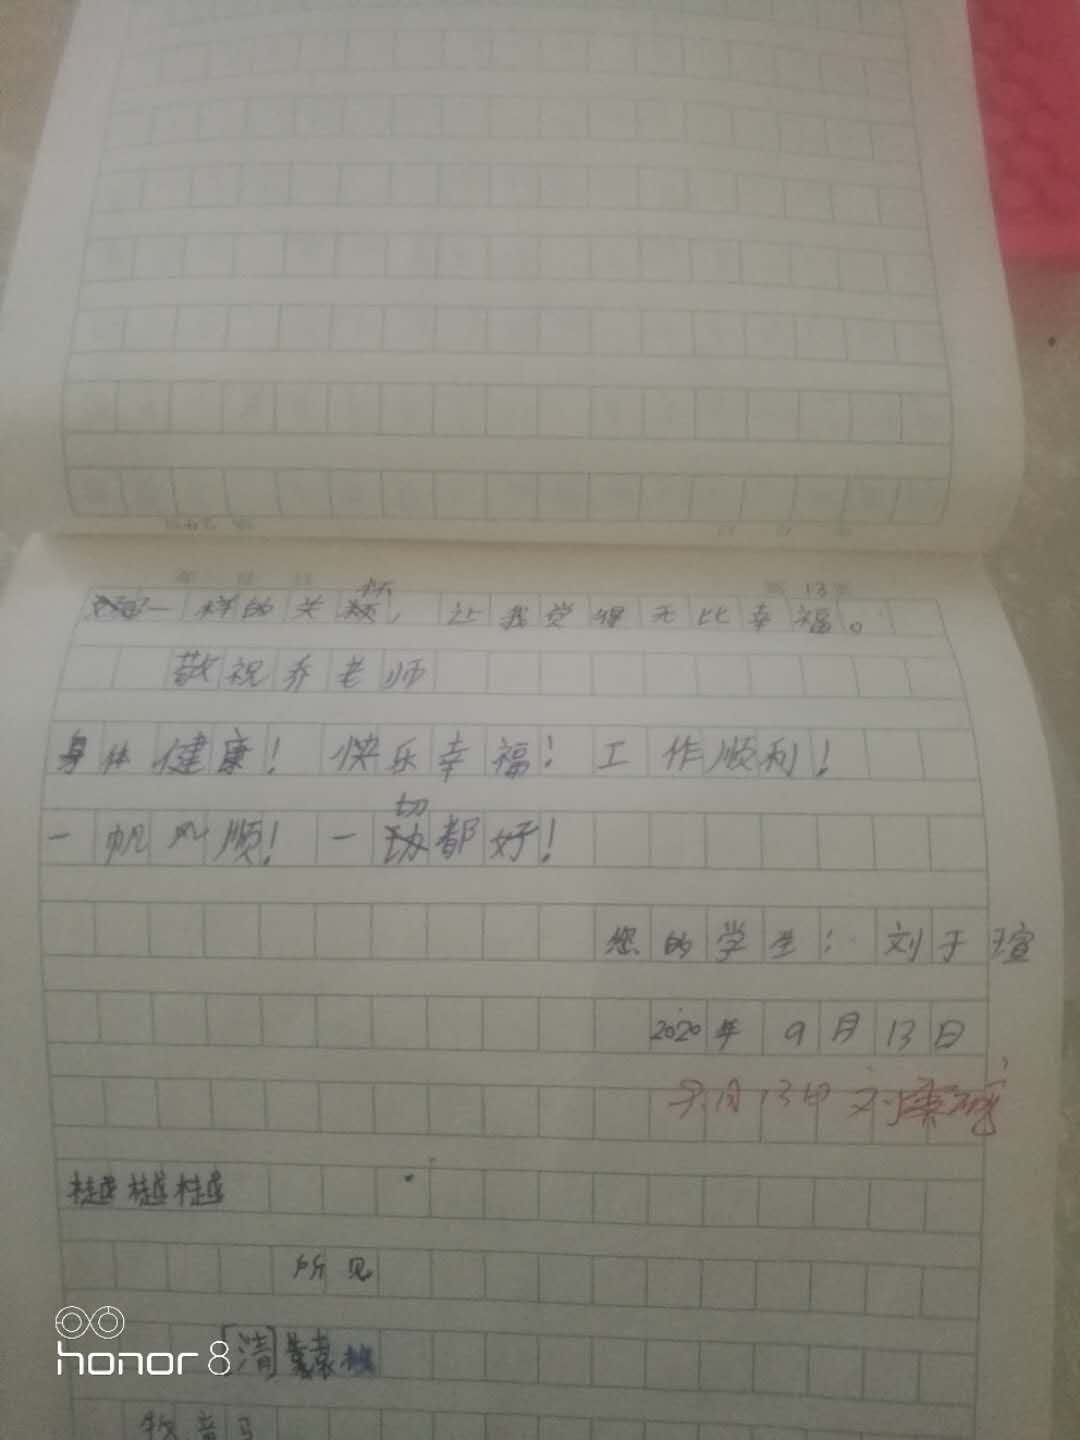 13
一样的关怀，让我觉得无比幸福。
敬祝乔老师
身体健康！快乐幸福！工作顺利！
一帆风顺！一切都好！
您的学生：刘于瑄
2020年9月13日
9月13日
樾樾樾
所见
[清]袁
牧童
honor 8